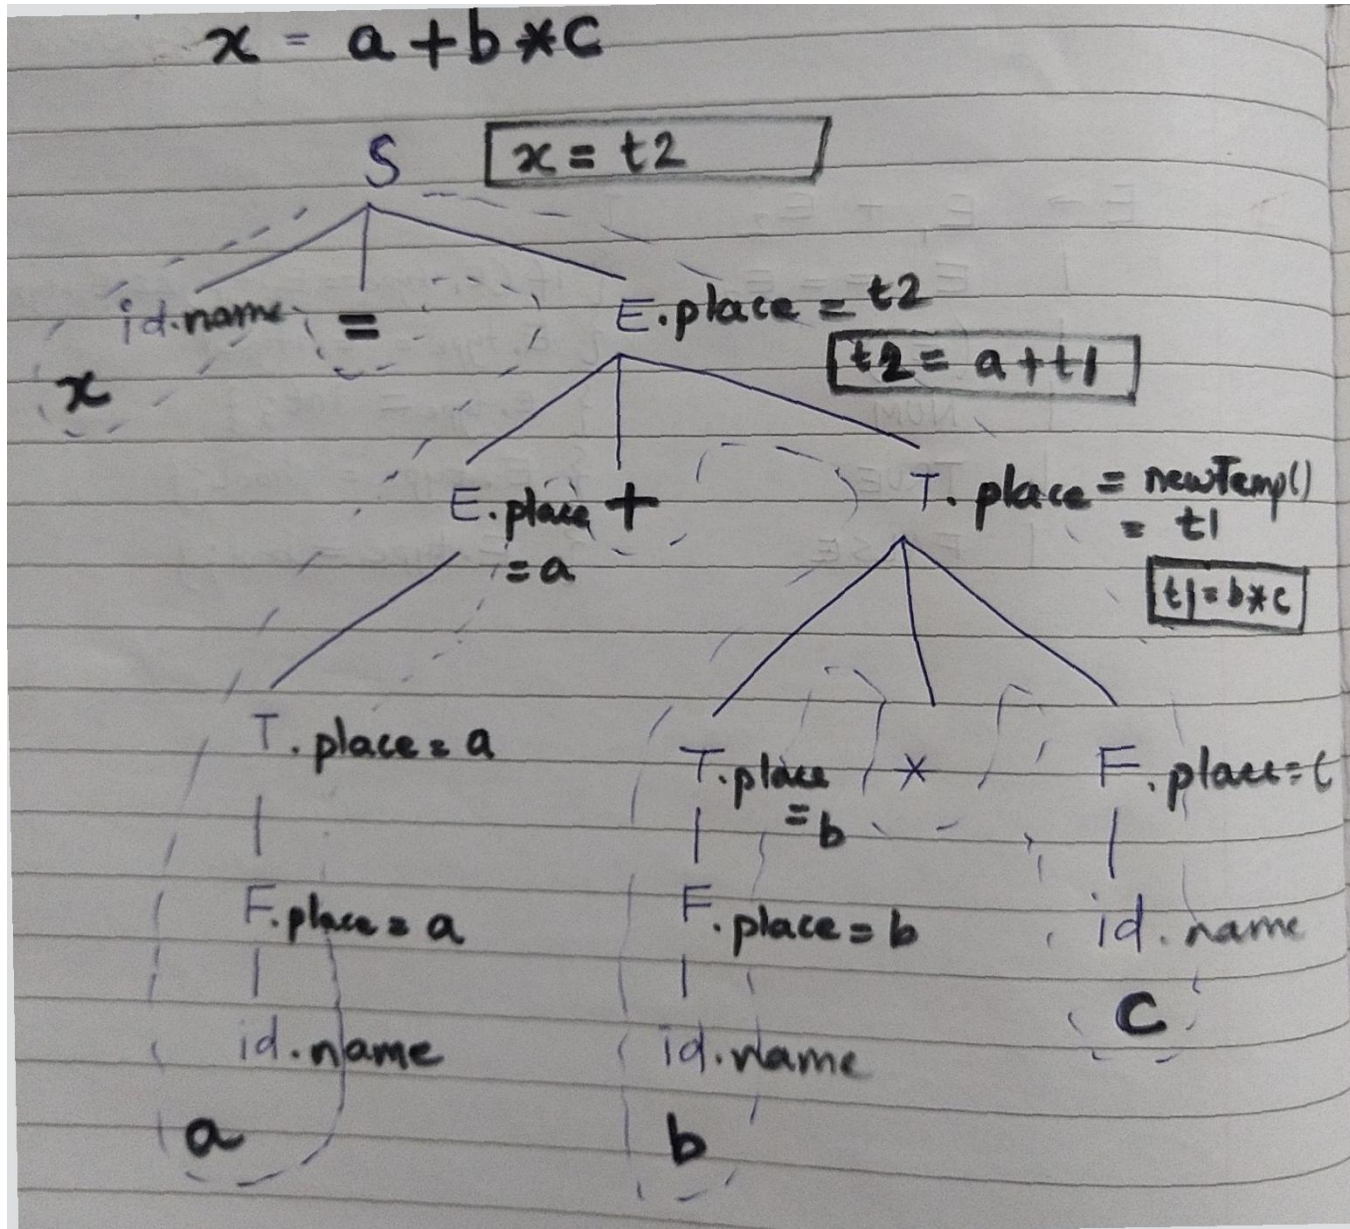 x = a + b * c
S x = t2
id.name = E.place = t2
x t2 = a + t1
E.place + T.place = newTemp()
= a = t1
t1 = b * c
T.place = a T.place × F.place = c
= b
F.place = a F.place = b id.name
c
id.name id.name
a b